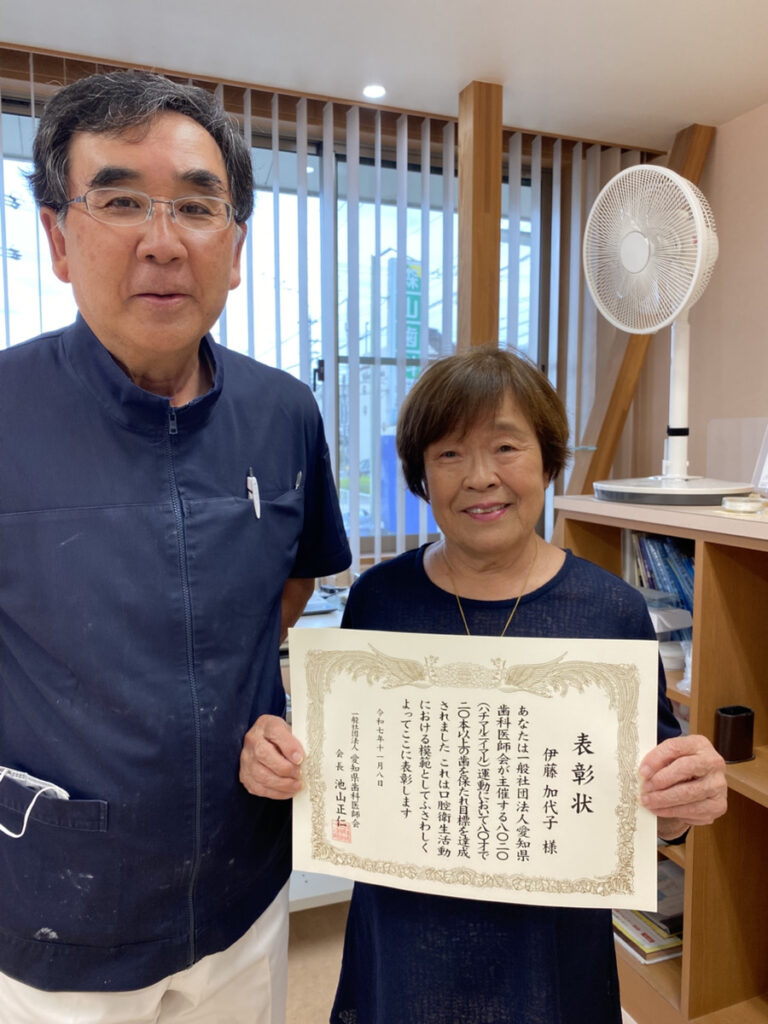 表彰状
伊藤 加代子 様
あなたは一般社団法人愛知県
歯科医師会が主催する八〇二〇
(ハチマルニイマル)運動において八〇才で
二〇本以上の歯を保たれ目標を達成
されました これは口腔衛生活動
における模範としてふさわしく
よってここに表彰します
令和七年十一月八日
一般社団法人 愛知県歯科医師会
会長 池山正仁
山歯